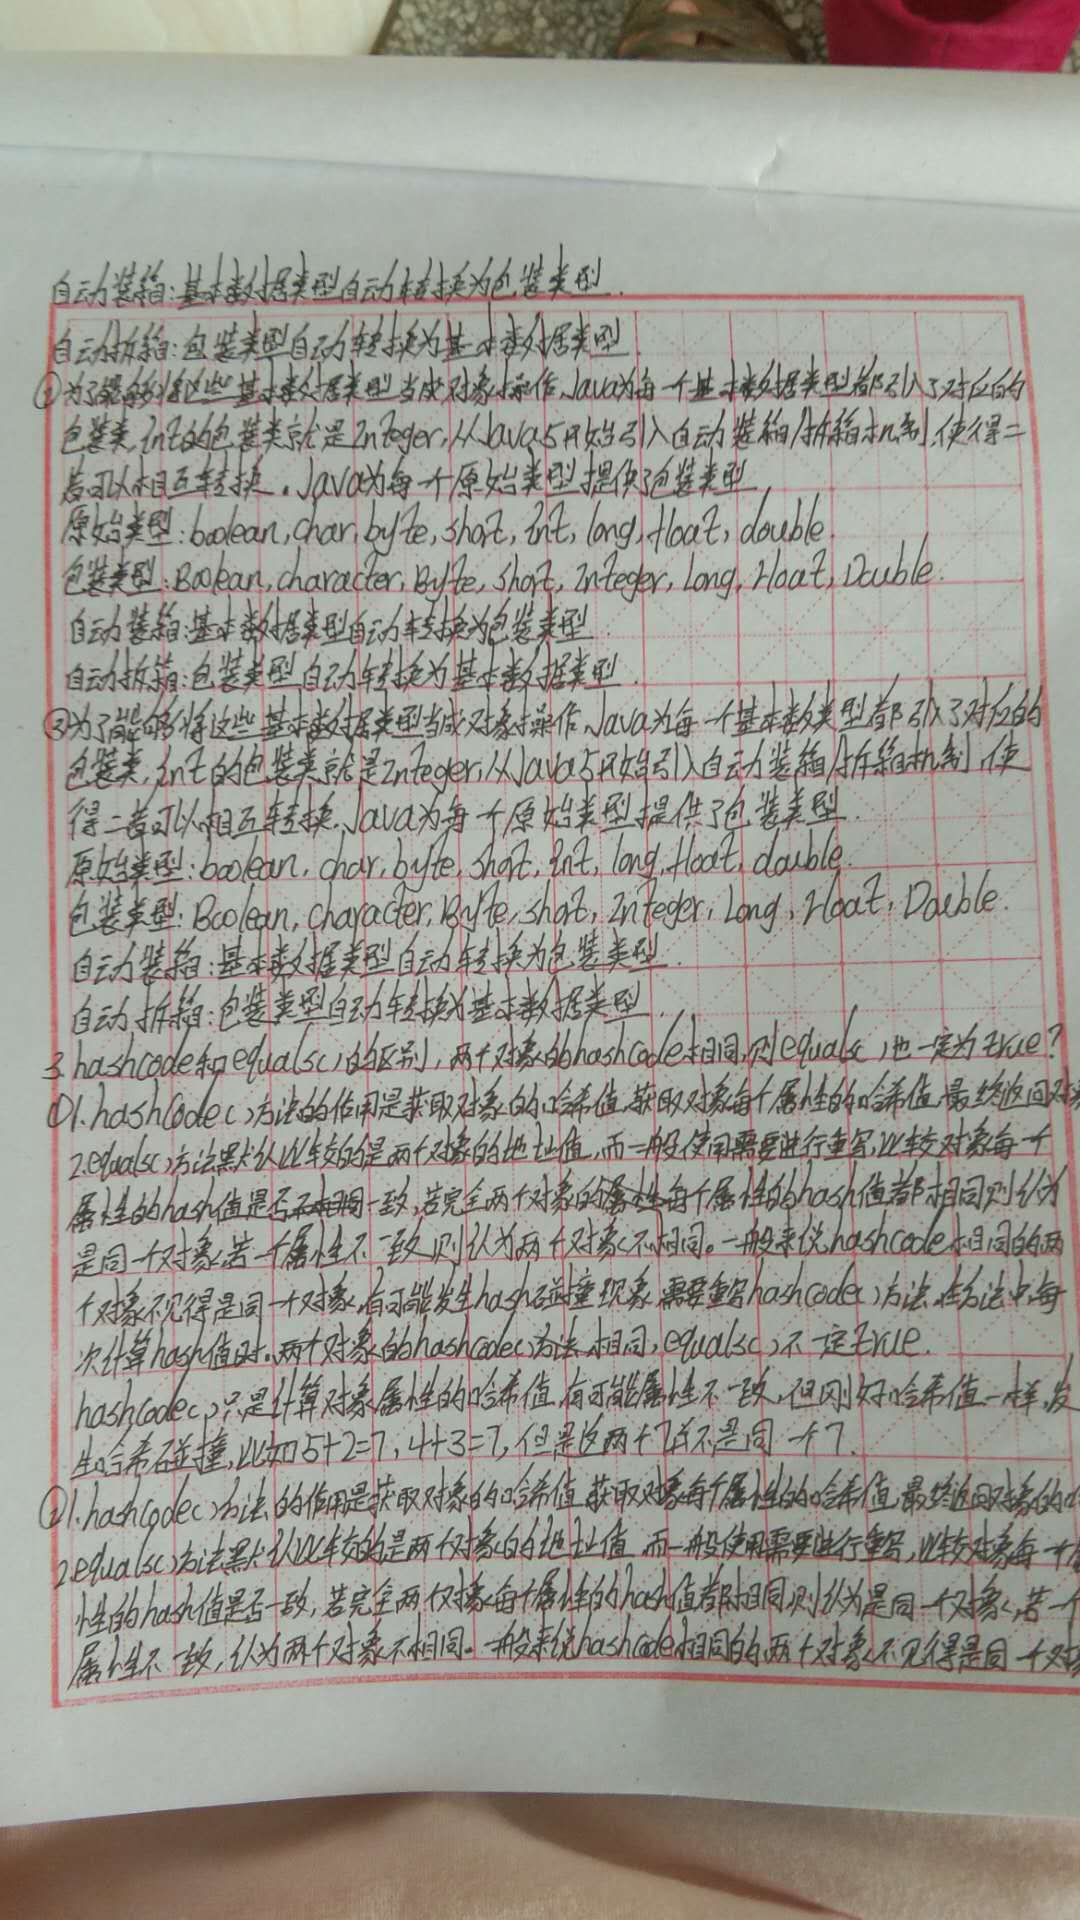 自动装箱:基本数据类型自动转换为包装类型.
自动拆箱:包装类型自动转换为基本数据类型.
②为了能够将这些基本数据类型当成对象操作,Java为每一个基本数据类型都引入了对应的
包装类,int的包装类就是Integer,从Java5开始引入自动装箱/拆箱机制,使得二
者可以相互转换。Java为每个原始类型提供了包装类型,
原始类型:boolean,char,byte,short,int,long,float,double.
包装类型:Boolean,character,Byte,short,Integer,Long,Float,Double.
自动装箱:基本数据类型自动转换为包装类型.
自动拆箱:包装类型自动转换为基本数据类型.
③为了能够将这些基本数据类型当成对象操作,Java为每一个基本数类型都引入了对应的
包装类,int的包装类就是Integer,从Java5开始引入自动装箱/拆箱机制,使
得二者可以相互转换.Java为每个原始类型提供了包装类型.
原始类型:boolean,char,byte,short,int,long,float,double.
包装类型:Boolean,character,Byte,short,Integer,Long,Float,Double.
自动装箱:基本数据类型自动转换为包装类型.
自动拆箱:包装类型自动转换为基本数据类型.
3.hashcode和equals()的区别,两个对象的hashcode相同,则equals()也一定为true?
①1.hashcode()方法的作用是获取对象的哈希值,获取对象每个属性的哈希值,最终返回对象
2.equals()方法默认比较的是两个对象的地址值,而一般使用需要进行重写,比较对象每一个
属性的hash值是否不相同一致,若完全两个对象的属性每个属性的hash值都相同则认为
是同一个对象,若一个属性不一致则认为两个对象不相同。一般来说hashcode相同的两
个对象不见得是同一个对象,有可能发生hash碰撞现象,需要重写hashcode()方法,在方法中,每
次计算hash值时.两个对象的hashcode()方法相同,equals()不一定true.
hashcode()只是计算对象属性的哈希值,有可能属性不一致,但刚好哈希值一样,发
生哈希碰撞,比如5+2=7,4+3=7,但是这两个7并不是同一个7.
②1.hashcode()方法的作用是获取对象的哈希值,获取对象每个属性的哈希值,最终返回对象的
2.equals()方法默认比较的是两个对象的地址值,而一般使用需要进行重写,比较对象每一个
性的hash值是否一致,若完全两个对象每个属性的hash值都相同则认为是同一个对象,若一个
属性不一致,认为两个对象不相同。一般来说hashcode相同的两个对象不见得是同一个对